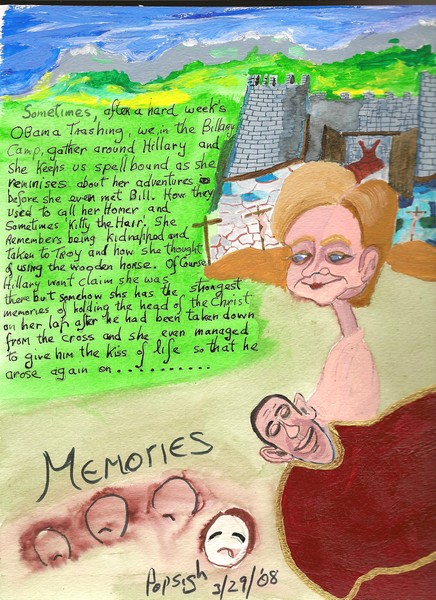 Sometimes, after a hard week's
OBama Trashing, we, in the Billary
Camp, gather around Hillary and
she keeps us spellbound as she
reminises about her adventures
before she even met Bill. How they
used to call her Homer and
Sometimes 'Kitty the Hair'. She
Remembers being kidnapped and
Taken to Troy and how she thought
of using the wooden horse. Of Course
Hillary won't claim she was
there but somehow shs has the strongest
memories of holding the head of the Christ
on her lap after he had been taken down
from the cross and she even managed
to give him the kiss of life so that he
arose again on ...........
MEMORIES
Popsigh 3/29/'08